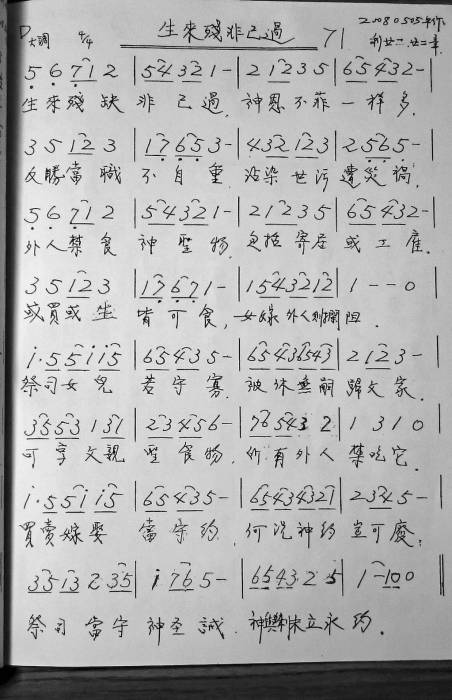 D大調 4/4 生來殘非己過 71 20080505年作
利廿二,廿二章
5 6 71 2 | 54321- | 21235 | 65432- |
生來殘缺 非己過, 神恩不菲一样多.
35123 | 17653- | 432123 | 2565- |
反勝當職 不自重, 沾染世污遭災禍.
5 6 71 2 | 54321- | 21235 | 65432- |
外人禁食 神聖物, 包括寄居或工雇.
35123 | 17671- | 1543212 | 1--0 |
或買或生 皆可食, 女嫁外人則攔阻.
1·55115 | 65435- | 65436543 | 2123- |
祭司女兒 若守寡, 被休無嗣歸父家.
3553131 | 23456- | 765432 | 1310 |
可享父親 聖食物, 所有外人禁吃它.
1·55115 | 65435- | 65434321 | 2345- |
買賣嫁娶 當守約, 何况神約豈可廢.
3513235 | 1765- | 654325 | 1-100 ‖
祭司當守神圣誡, 神與朕立永約.